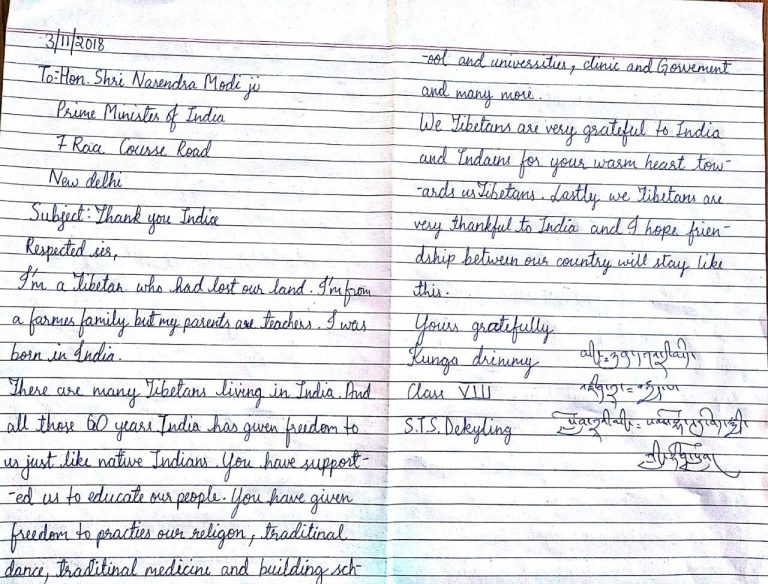 3/11/2018
To:-Hon. Shri Narendra Modi ji
Prime Minister of India
7 Raca Course Road
New delhi
Subject: Thank you India
Respected sir,
I'm a Tibetan who had lost our land. I'm from
a farmer family but my parents are teachers. I was
born in India.
There are many Tibetans living in India. And
all those 60 years India has given freedom to
us just like native Indians. You have support-
-ed us to educate our people. You have given
freedom to practies our religon, traditinal
dance, traditinal medicine and building sch-
-ool and universities, clinic and Gorvement
and many more.
We Tibetans are very grateful to India
and Indains for your warm heart tow-
-ards us Tibetans. Lastly we Tibetans are
very thankful to India and I hope frien-
dship between our country will stay like
this.
Yours gratefully
Kunga drimmy
Class VIII
S.T.S. Dekyling